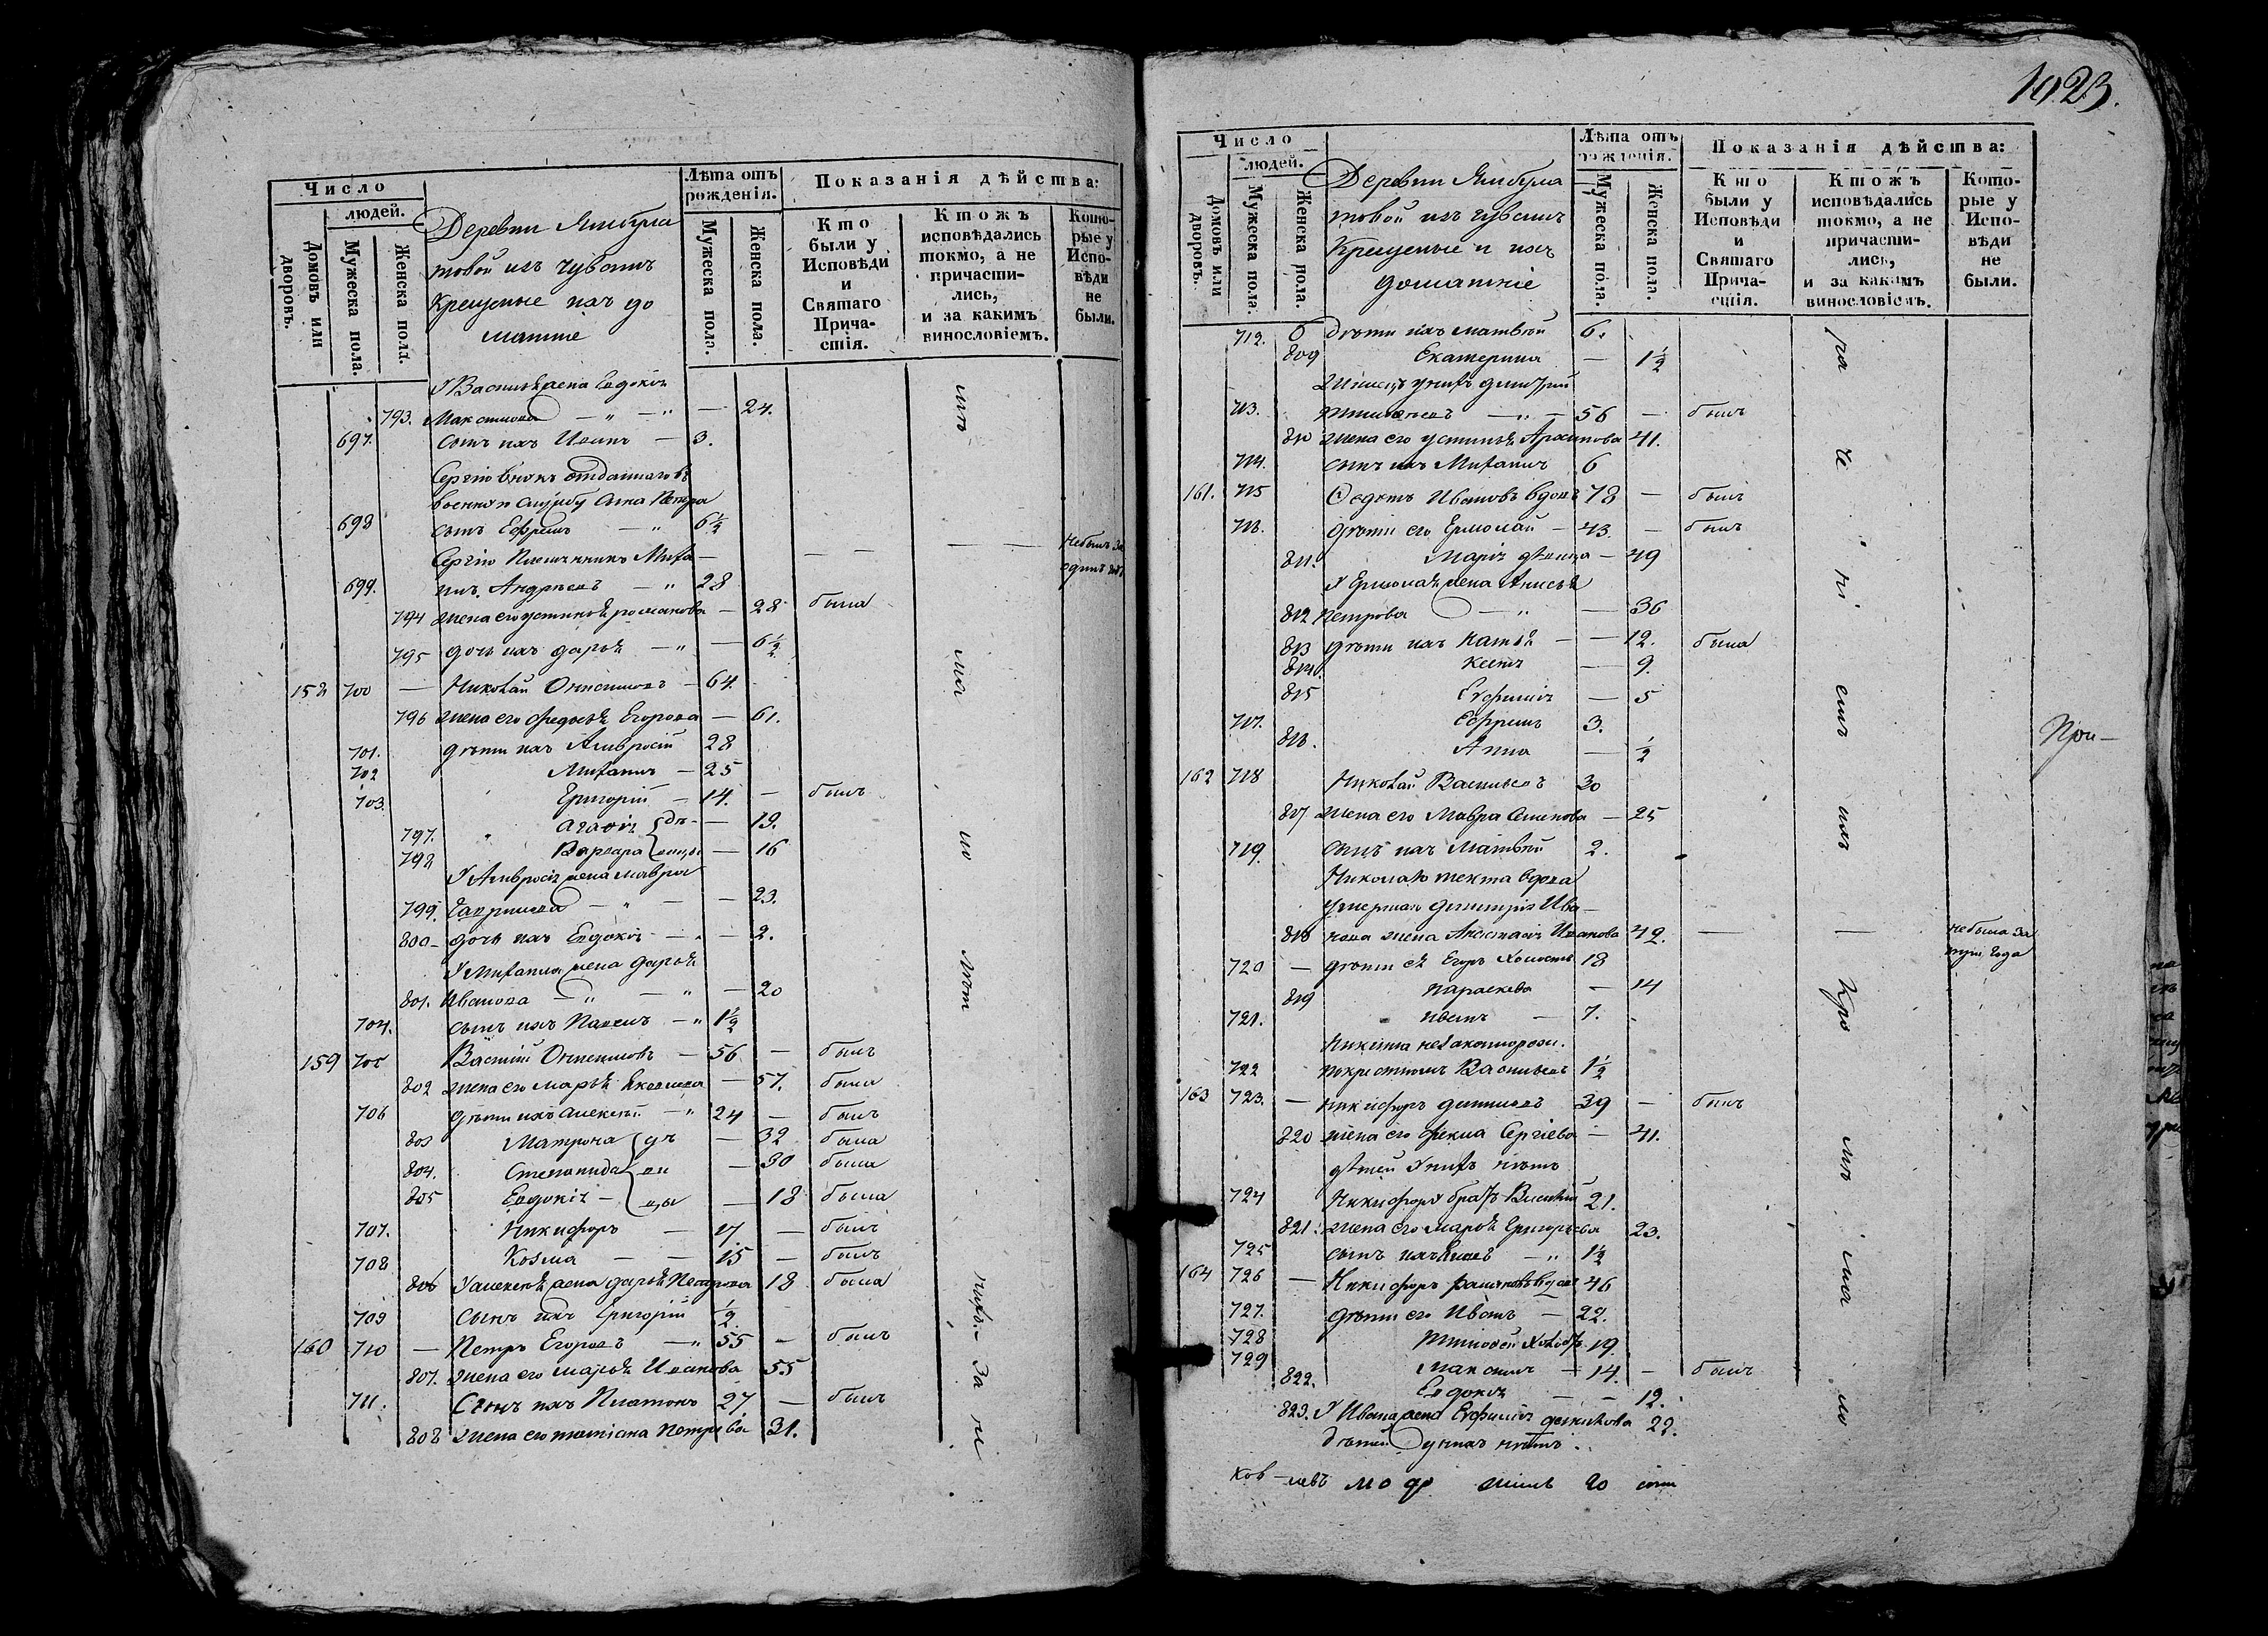 1023.
Число
людей.
Домовъ или дворовъ.
Мужеска пола.
Женска пола.
Деревни Ямбула
товой изъ чувашъ
Крещеные ихъ до
машніе
Лѣта отъ рожденія.
Мужеска пола.
Женска пола.
Показанія дѣйства:
Кто были у Исповѣди и Святаго Причастія.
Ктожъ исповѣдались токмо, а не причастились, и за какимъ винословіемъ.
Которые у Исповѣди не были.
У Василья жена Евдокія
793. Максимова — 24.
697. Сынъ ихъ Иванъ — 3.
Сергію внукъ отданнаго въ
военную службу сына Петра
698 сынъ Ефремъ — 6½
Сергію Племянникъ Миха—
699. илъ Андреевъ — 28 не былъ за
794 жена его устинья романова — 28 была
795 дочь ихъ дарья — 6½
158 700 — Николай Онисимовъ — 64.
796 жена его федосья Егорова — 61.
701. дѣти ихъ Амвросій 28
702 Михаилъ — 25
703. Григорій — 14. — былъ
797. Агафія — 19.
798 Варвара — 16
У Амвросія жена мавра
799. Гаврилова — 23.
800 — дочь ихъ Евдокія — 2.
У Михаила жена дарья
801. Иванова — 20
704. сынъ ихъ Павелъ — 1½
159 705 Василій Онисимовъ — 56 — былъ
802 жена его марья Яковлева — 57. была
706 дѣти ихъ Алексѣй — 24 — былъ
803 Матрона — 32 была
804. Степанида — 30 была
805 Евдокія — 18 была
707. Никифоръ — 17 — былъ
708 Козма — 15 — былъ
806 У алексѣя жена дарья Петрова 18 была
709 Сынъ ихъ Григорій ½
160 710 — Петръ Егоровъ — 55 — былъ
807. жена его марья Иванова 55
711. Сынъ ихъ Платонъ 27 — былъ
808 жена его татіана Петрова 31.
Число
людей.
Домовъ или дворовъ.
Мужеска пола.
Женска пола.
Деревни Ямбула
товой изъ чувашъ
Крещеные и ихъ
домашніе
Лѣта отъ рожденія.
Мужеска пола.
Женска пола.
Показанія дѣйства:
Кто были у Исповѣди и Святаго Причастія.
Ктожъ исповѣдались токмо, а не причастились, и за какимъ винословіемъ.
Которые у Исповѣди не были.
712. дѣти ихъ матвѣй 6.
809 Екатерина — 1½
Жилецъ у нихъ димитрій
713. — 56 — былъ
810 жена его устинья Архипова 41.
714. сынъ ихъ Михаилъ 6
161. 715 Федотъ Ивановъ вдовъ 78 — былъ
716. дѣти его Ермолай — 43. — былъ
811. Марія дѣвица — 49
У Ермолая жена Анисья
812 Петрова — 36
813 дѣти ихъ — 12. была
814. — 9.
815 Евфимія — 5
717. Ефремъ 3.
816. Анна — ½
162 718 Николай Васильевъ 30
817 жена его Мавра Семенова — 25
719 сынъ ихъ Матвѣй 2.
Николаю тетка вдова
умершаго димитрія Ива—
818 нова жена Анастасія Иванова 42. — не была за
720 — дѣти ея Егоръ Холостъ 18 три года
819 параскева — 14
721. иванъ — 7.
Никита незаконнорожд.
722 по крестномъ Васильевъ 1½
163 723. — никифоръ даниловъ 39 — былъ
820 жена его фекла Сергіева — 41.
дѣтей У нихъ нѣтъ
724 Никифору братъ Василій 21.
821. жена его марья Григорьева 23.
725 сынъ ихъ — 1½
164 726 — Никифоръ вдовъ 46
727. дѣти его Иванъ — 22.
728 Тимофей холостъ 19.
729 максимъ — 14. — былъ
822. Евдокія — 12.
823. У Ивана жена Евфимія 22.
дѣтей у нихъ нѣтъ.
При—